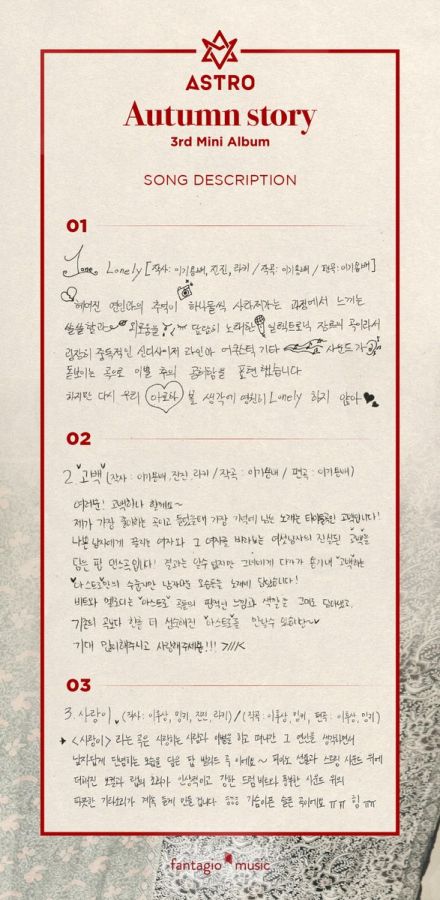 ASTRO
Autumn story
3rd Mini Album
SONG DESCRIPTION
01
Lonely [작사: 이기용배, 진진, 라키 / 작곡: 이기용배 / 편곡: 이기용배]
헤어진 연인와의 추억이 하나둘씩 사라져가는 과정에서 느끼는
쓸쓸함과 외로움을 담담히 노래한 일렉트로닉 장르의 곡이라서
굉장히 중독적인 신디사이저 라인와 어쿠스틱 기타 사운드가
돋보이는 곡으로 이별 후의 공허함을 표현했습니다
하지만 다시 우리 아로하 볼 생각에 영원히 Lonely 하지 않아
02
2. "고백" (작사: 이기용배, 진진, 라키 / 작곡: 이기용배 / 편곡: 이기용배)
여러분! 고백하나 할게요~
제가 가장 좋아하는 곡이고 들었을때 가장 기억에 남는 노래는 타이틀곡인 고백입니다!
나쁜 남자에게 끌리는 여자와 그 여자를 바라보는 여섯남자의 진심된 "고백"을
담은 팝 댄스곡입니다! 결과는 알수 없지만 그녀에게 다가가 손기내 "고백"하는
"아스트로"만의 수줍지만 남자다운 모습을 노래에 담았습니다!
비트와 멜로디는 "아스트로" 곡들의 청량한 느낌과 색깔을 그대로 담아냈고,
기존의 곡보다 한층 더 성숙해진 "아스트로"를 만날수 있습니다~
기대 많이해주시고 사랑해주세요!!!
03
3. 사랑이, (작사: 이류상, 밍키, 진진, 라키) / (작곡: 이류상, 밍키, 편곡: 이류상, 밍키)
<사랑이> 라는 곡은 사랑하는 사람과 이별을 하고 떠나간 그 연인을 생각하면서
남자답게 단념하는 모습을 담은 팝 발라드 곡 이에요~ 피아노 선율과 스트링 사운드 위에
더해진 보컬과 랩의 조화가 인상적이고 강한 드럼 비트와 풍부한 사운드 위의
따뜻한 기타소리가 계속 듣게 만들 겁니다 가슴아픈 슬픈 곡이에요 ㅠㅠ 힝 ㅠㅠ
fantagio music